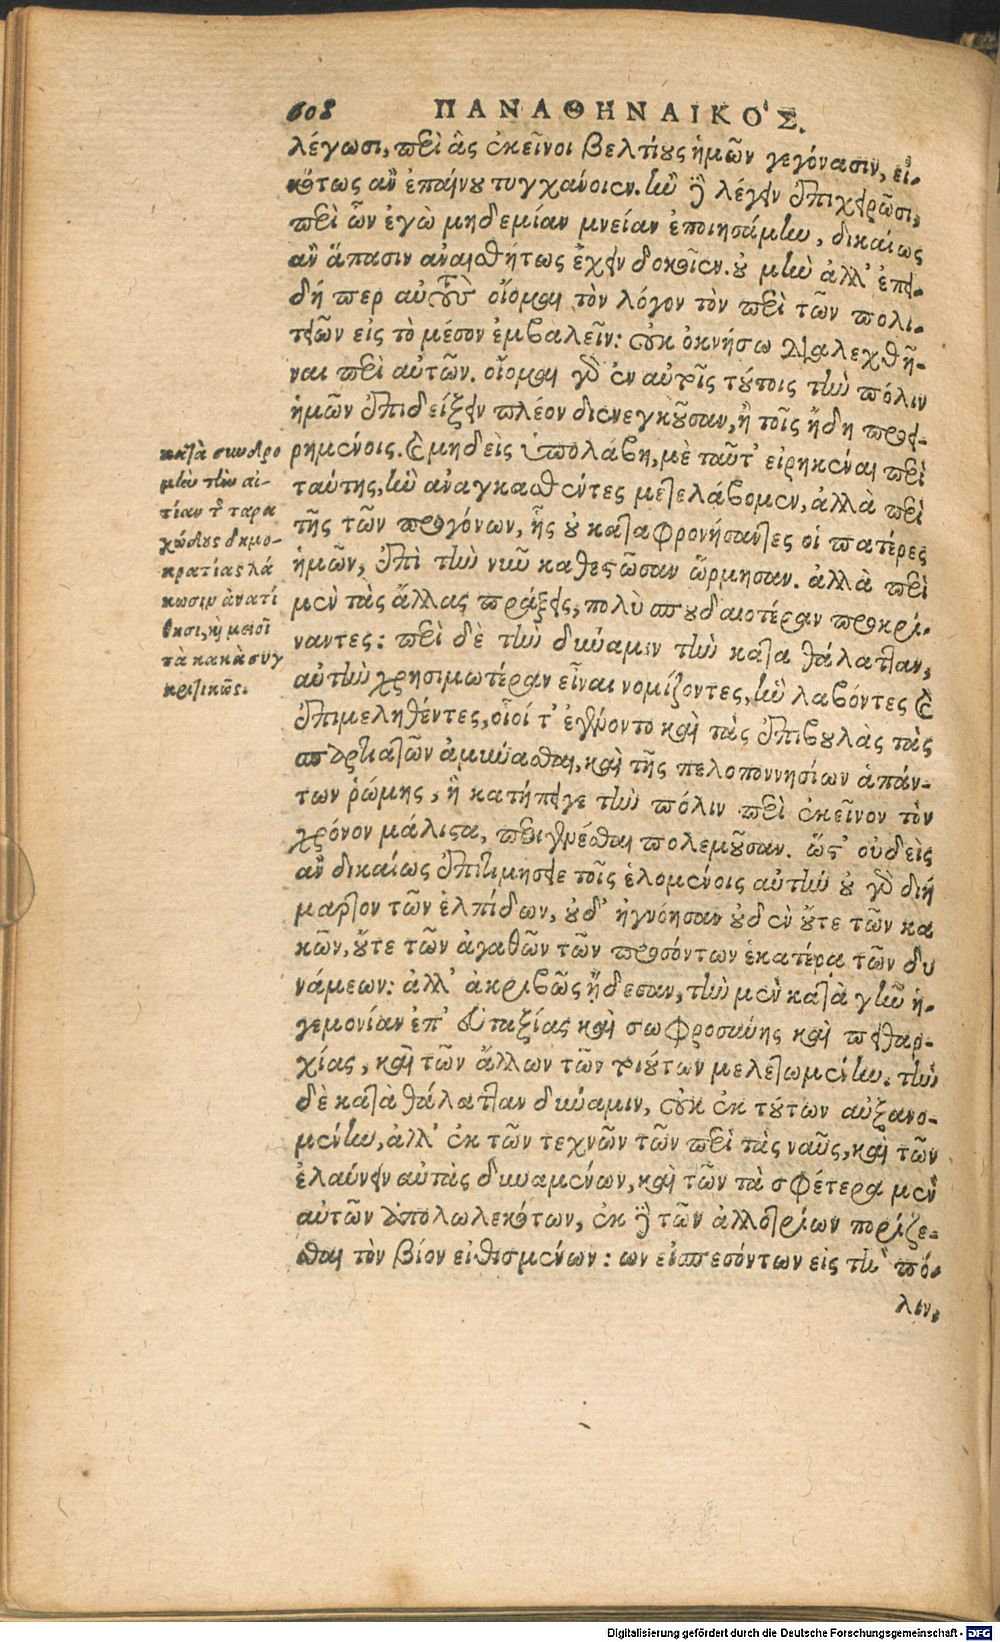 608 ΠΑΝΑΘΗΝΑΙΚΟ'Σ.
λέγωσι, περὶ ἃς ἐκεῖνοι βελτίους ἡμῶν γεγόνασιν, εἰ-
κότως ἂν ἐπαίνου τυγχάνοιεν. ἢν δὲ λέγειν ἐπιχειρῶσι,
περὶ ὧν ἐγὼ μηδεμίαν μνείαν ἐποιησάμην, δικαίως
ἂν ἅπασιν ἀναισθήτως ἔχειν δοκοῖεν. οὐ μὴν ἀλλ' ἐπει-
δή περ αὐτοὺς οἴομαι τὸν λόγον τὸν περὶ τῶν πολι-
τειῶν εἰς τὸ μέσον ἐμβαλεῖν: οὐκ ὀκνήσω διαλεχθῆ-
ναι περὶ αὐτῶν. οἶομαι γὰρ ἐν αὐτοῖς τούτοις τὴν πόλιν
ἡμῶν ἐπιδείξειν πλέον διενεγκοῦσαν, ἢ τοῖς ἤδη προει-
ρημένοις. καὶ μηδεὶς ὑπολάβῃ, με ταῦτ' εἰρηκέναι περὶ
ταύτης, ἣν ἀναγκασθέντες μετελάβομεν, ἀλλὰ περὶ
τῆς τῶν προγόνων, ἧς οὐ καταφρονήσαντες οἱ πατέρες
ἡμῶν, ἐπὶ τὴν νῦν καθεστῶσαν ὥρμησαν. ἀλλὰ περὶ
μὲν τὰς ἄλλας πράξεις, πολὺ σπουδαιοτέραν προκρί-
ναντες: περὶ δὲ τὴν δύναμιν τὴν κατὰ θάλατταν,
αὐτὴν χρησιμωτέραν εἶναι νομίζοντες, ἣν λαβόντες καὶ
ἐπιμεληθέντες, οἷοί τ' ἐγένοντο καὶ τὰς ἐπιβουλὰς τὰς
σπαρτιατῶν ἀμύνασθαι, καὶ τῆς πελοποννησίων ἁπάν-
των ῥώμης, ἣ κατήπειγε τὴν πόλιν περὶ ἐκεῖνον τὸν
χρόνον μάλιστα, περιγενέσθαι πολεμοῦσαν. ὥστ' οὐδεὶς
ἂν δικαίως ἐπιτιμήσειε τοῖς ἑλομένοις αὐτήν οὐ γὰρ διή
μαρτον τῶν ἐλπίδων, οὐδ' ἠγνόησαν οὐδὲν οὔτε τῶν κα
κῶν, οὔτε τῶν ἀγαθῶν τῶν προσόντων ἑκατέρα τῶν δυ
νάμεων: ἀλλ' ἀκριβῶς ᾔδεσαν, τὴν μὲν κατὰ γῆν ἡ-
γεμονίαν ἐπ' εὐταξίας καὶ σωφροσύνης καὶ πειθαρ-
χίας, καὶ τῶν ἄλλων τῶν τοιούτων μελετωμένην. τὴν
δὲ κατὰ θάλατταν δύναμιν, οὐκ ἐκ τούτων αὐξανο-
μένην, ἀλλ' ἐκ τῶν τεχνῶν τῶν περὶ τὰς ναῦς, καὶ τῶν
ἐλαύνειν αὐτὰς δυναμένων, καὶ τῶν τὰ σφέτερα μὲν
αὐτῶν ἀπολωλεκότων, ἐκ δὲ τῶν ἀλλοτρίων πορίζε-
σθαι τὸν βίον εἰθισμένων: ων εἰσπεσόντων εἰς τὴν πό-
λιν,
κατὰ συνδρο
μὴν τὴν αἰ-
τίαν τῆς ταρα
χώδους δημο-
κρατίας λά
κωσιν ἀνατί
θησι, καὶ μειοῖ
τὰ κακὰ συγ
κριτικῶς.
Digitalisierung gefördert durch die Deutsche Forschungsgemeinschaft - DFG